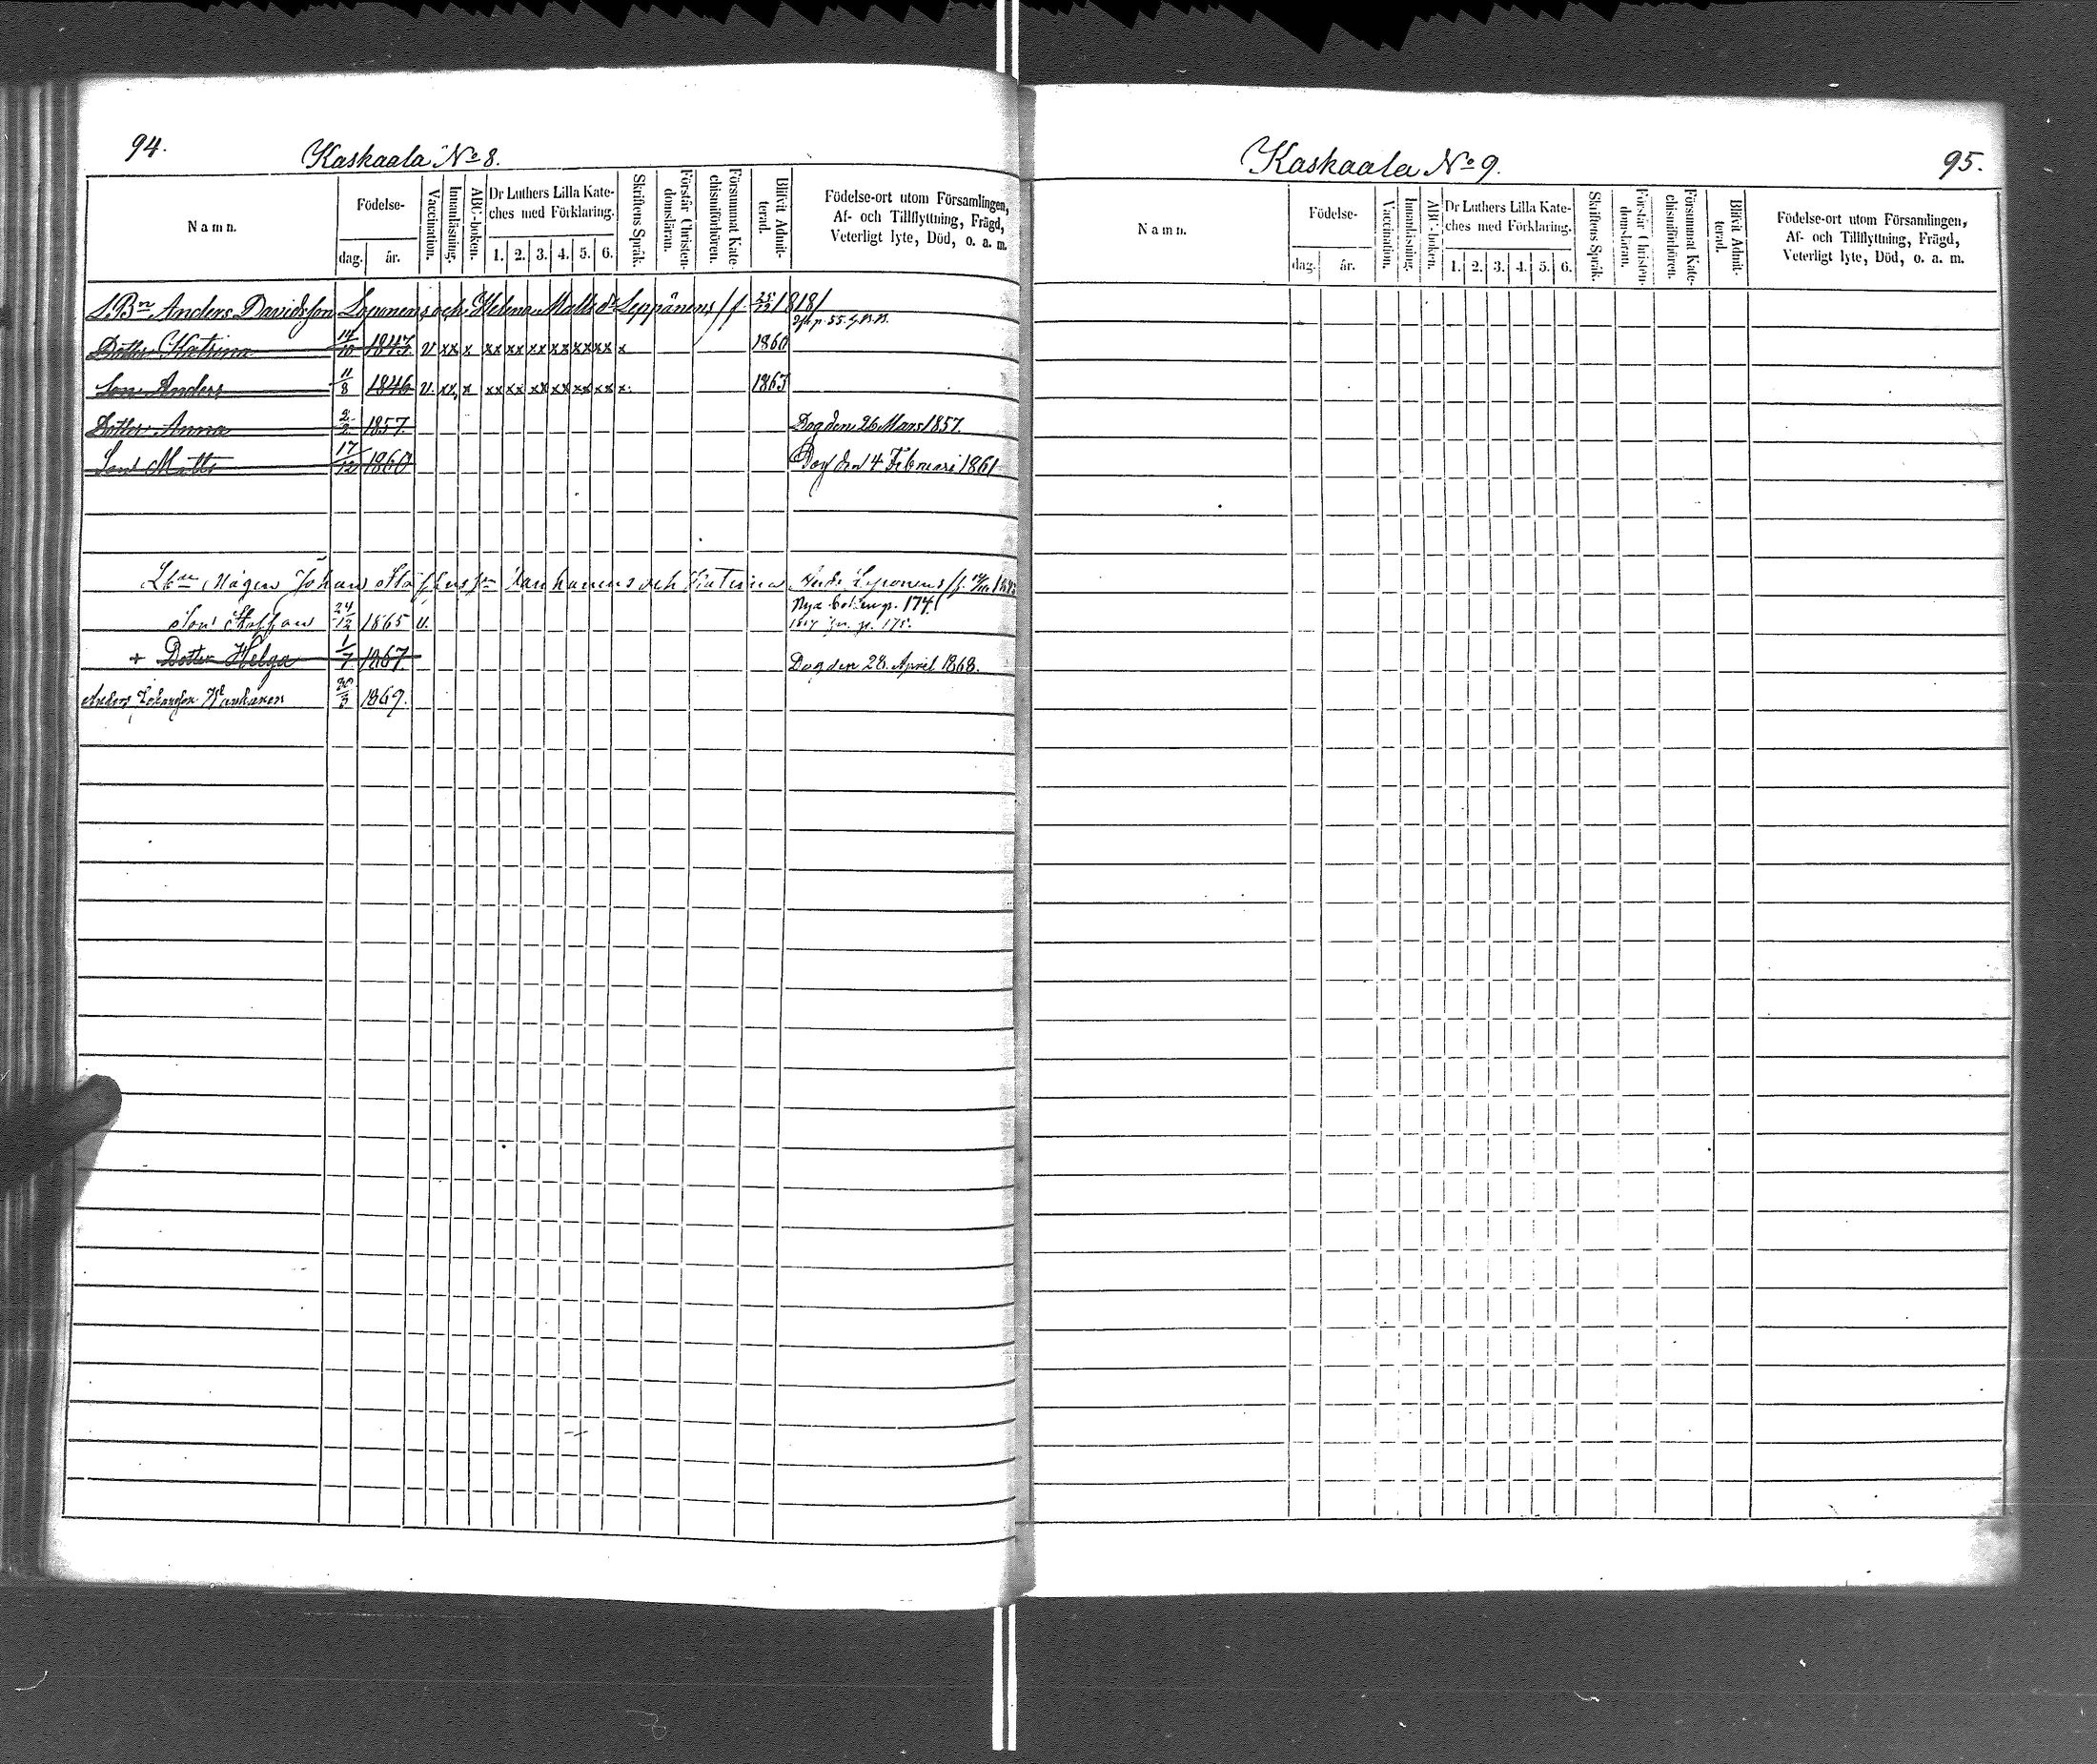 94.
Kaskaala No 8.
Namn.
Födelse-
dag.
år.
Vaccination.
Innanläsning.
ABC-boken.
Dr Luthers Lilla Kate-
ches med Förklaring.
1. 2. 3. 4. 5. 6.
Skriftens Språk.
Förstår Christen-
domsläran.
Försummat Kate-
chismiförhören.
Blifvit Admit-
terad.
Födelse-ort utom Församlingen,
Af- och Tillflyttning, Frägd,
Veterligt lyte, Död, o. a. m.
L.Bn Anders Davidsson och Helena Matts dr Leppänens /f. 25/12 1818/
p. 55.
Dotter Katrina 1843. v xx x xx xx xx xx xx xx x 1860
Son Anders 11/8 1846 v. xx x xx xx xx xx xx xx x. 1863
Dotter Anna 2/2 1857. Dog den 26 Mars 1857.
Son Matts 17/12 1860 Dog den 4 Februari 1861
Lbn Mågen Johan och Katrina
Nya p. 174
Son Staffan 24/12 1865 v.
+ Dotter Helga 1/7 1867 Dog den 28. April 1868.
Anders Johansson 1869.
Kaskaala No 9.
95.
Namn.
Födelse-
dag.
år.
Vaccination.
Innanläsning.
ABC-boken.
Dr Luthers Lilla Kate-
ches med Förklaring.
1. 2. 3. 4. 5. 6.
Skriftens Språk.
Förstår Christen-
domsläran.
Försummat Kate-
chismiförhören.
Blifvit Admit-
terad.
Födelse-ort utom Församlingen,
Af- och Tillflyttning, Frägd,
Veterligt lyte, Död, o. a. m.